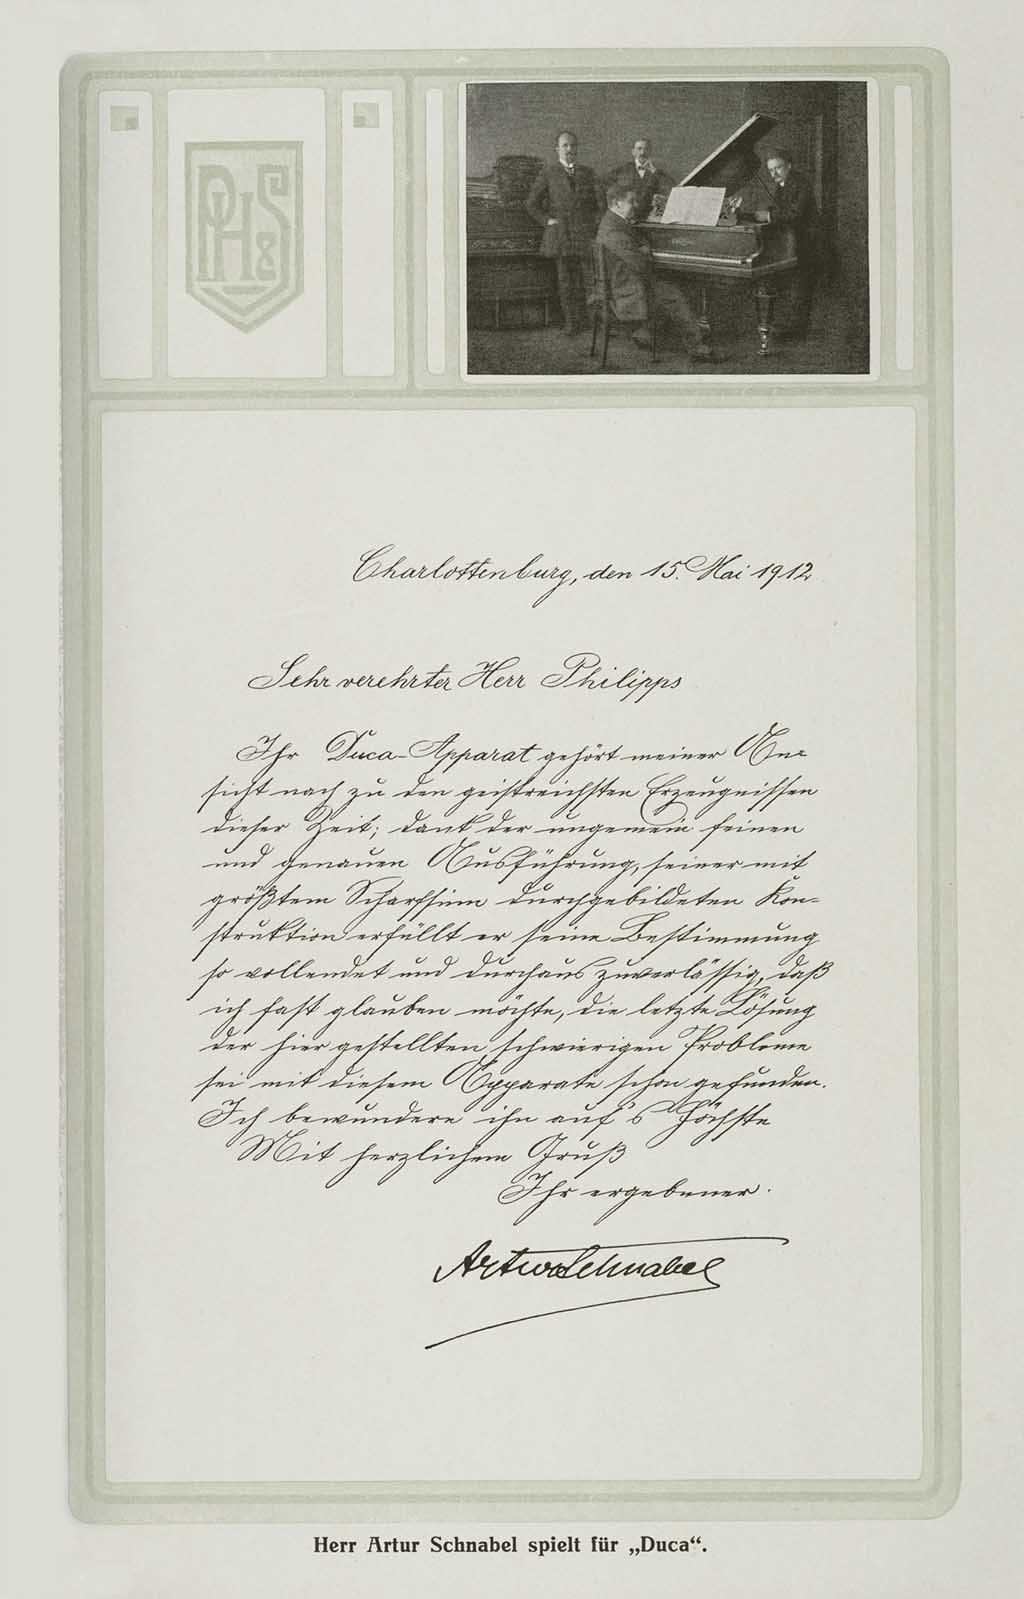 PH&S
Charlottenburg, den 15. Mai 1912
Sehr verehrter Herr Philipps
Ihr Duca-Apparat gehört meiner An-
sicht nach zu den geistreichsten Erzeugnissen
dieser Zeit; dank der ungemein feinen
und genauen Ausführung, seiner mit
größtem Scharfsinn durchgebildeten Kon-
struktion erfüllt er seine Bestimmung
so vollendet und durchaus zuverlässig, daß
ich fast glauben möchte, die letzte Lösung
der hier gestellten schwierigen Probleme
sei mit diesem Apparate schon gefunden.
Ich bewundere ihn auf's Höchste
Mit herzlichem Gruß
Ihr ergebener.
Artur Schnabel
Herr Artur Schnabel spielt für „Duca“.